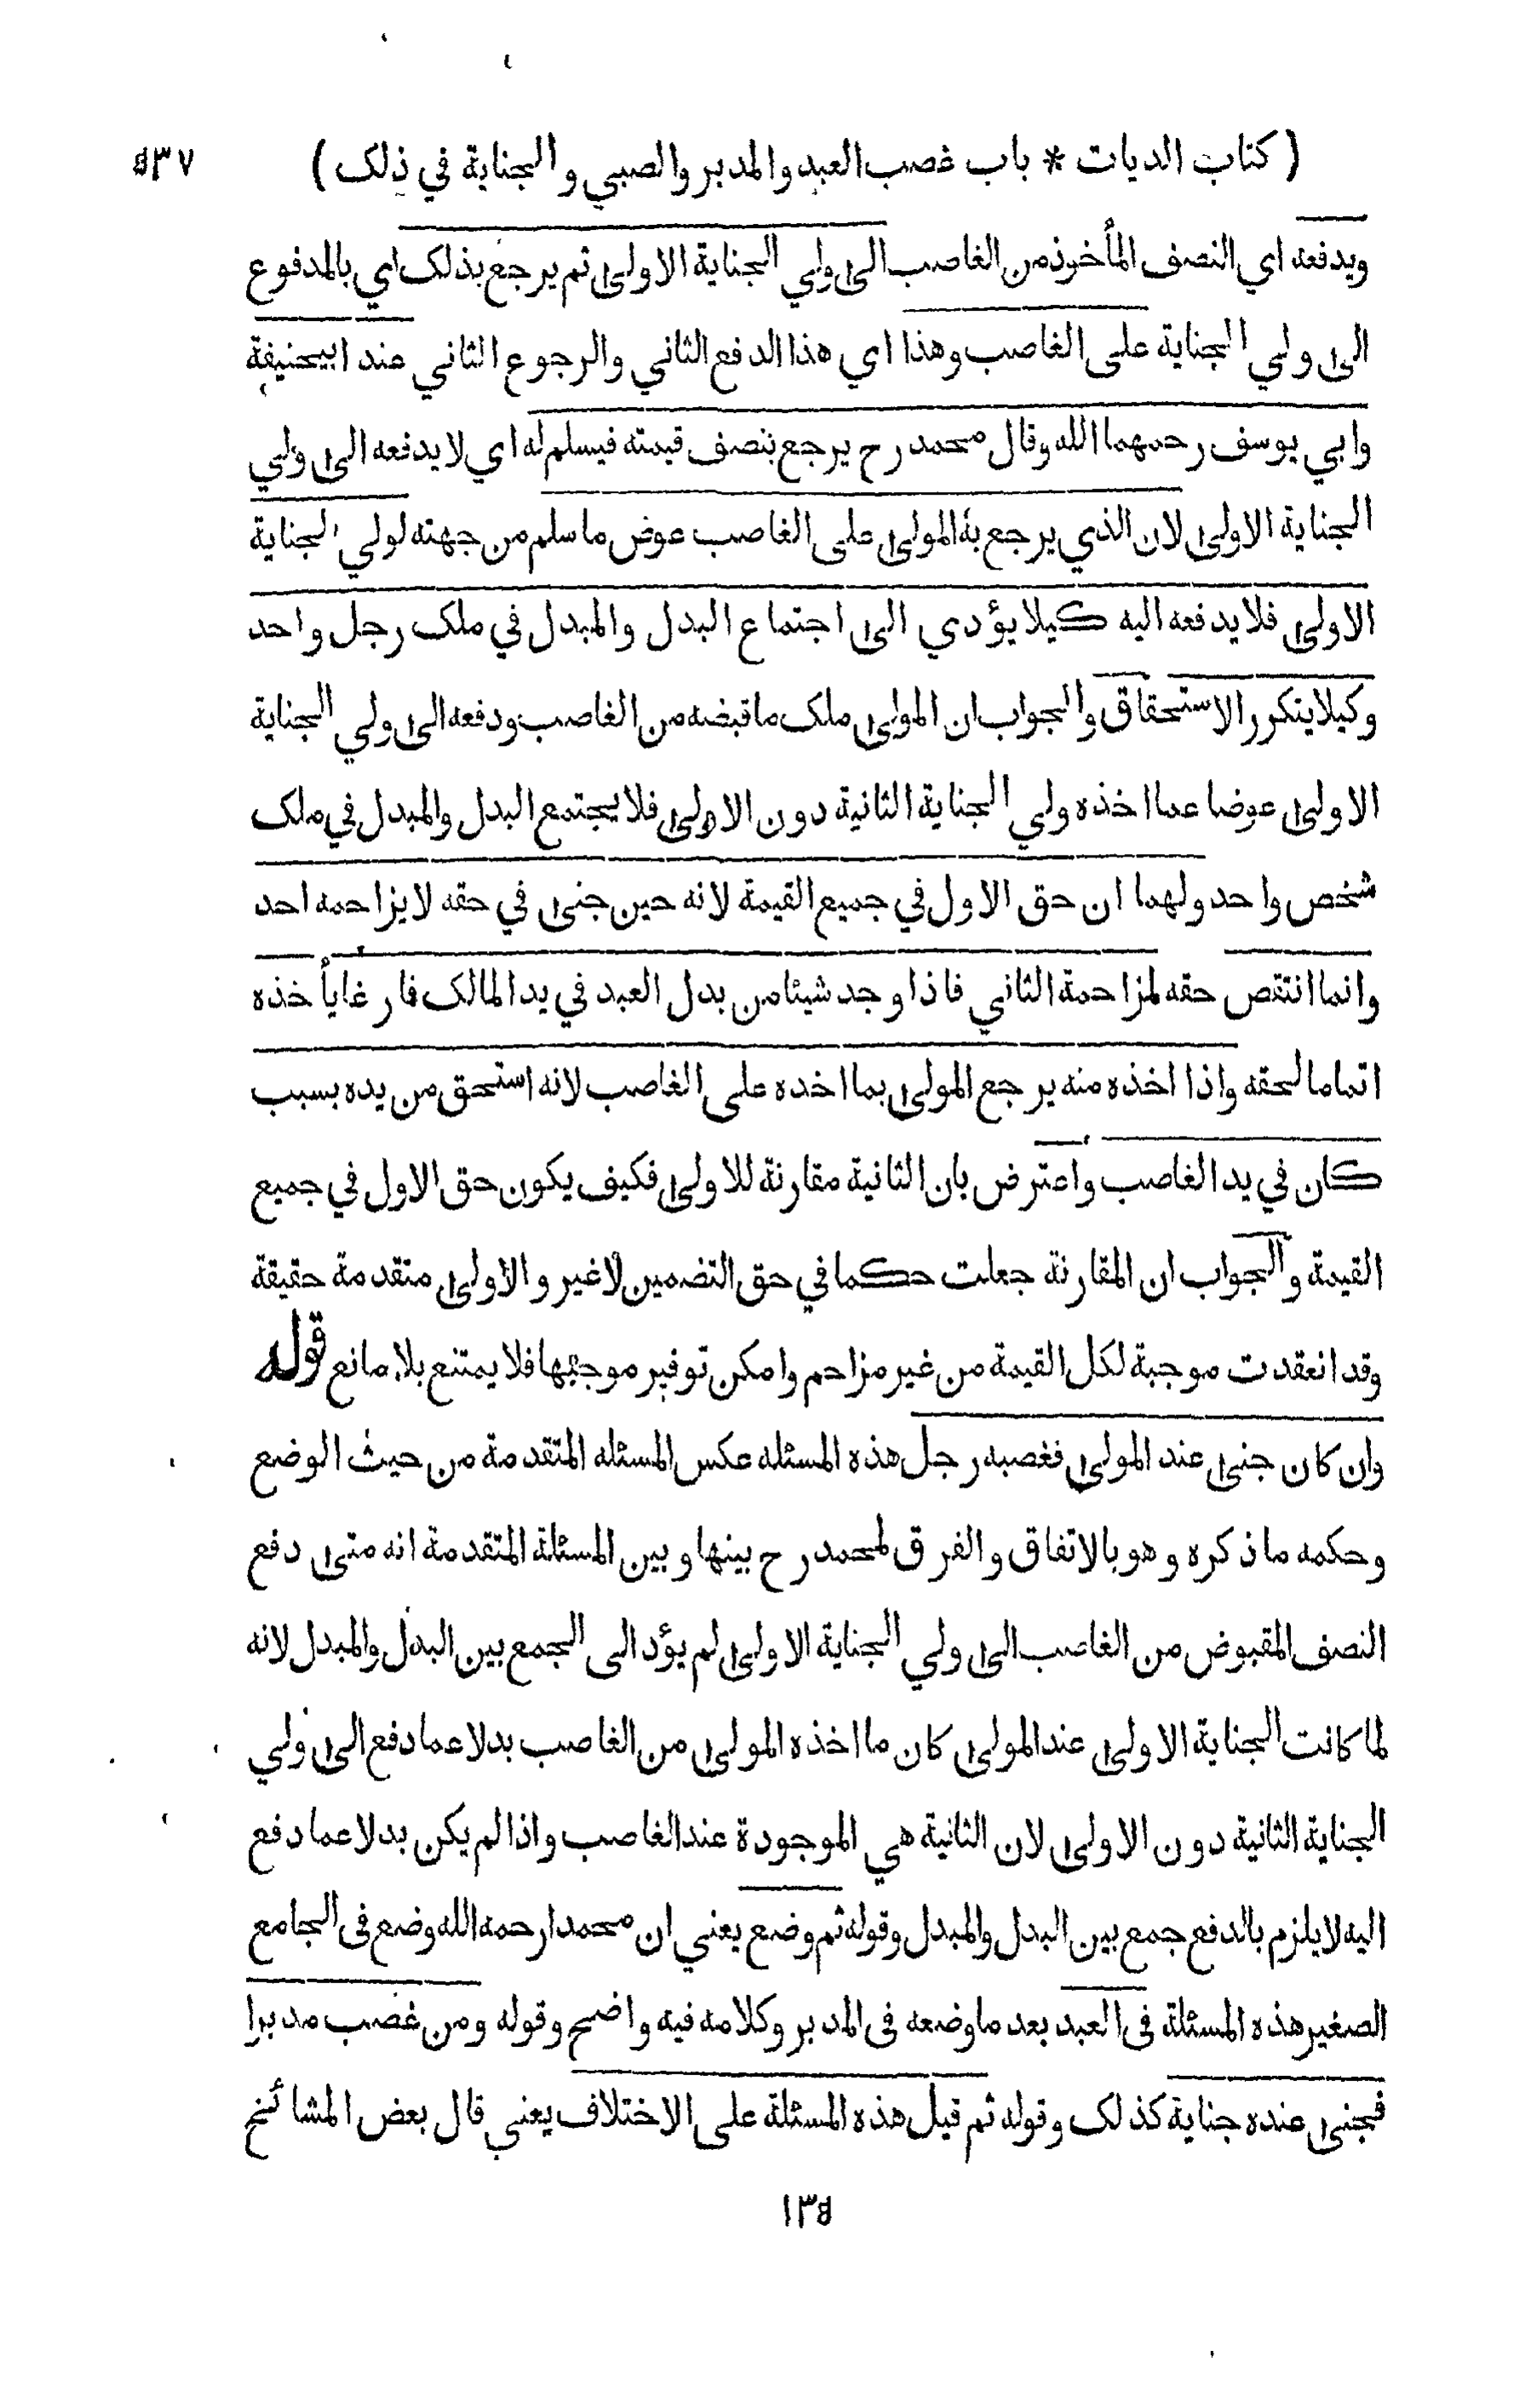 ( كتاب الديات * باب غصب العبد والمدبر والصبي والجناية في ذلك ) ٥٣٧
ويدفعه اي النصف المأخوذ من الغاصب الى ولي الجناية الاولى ثم يرجع بذلك اي بالمدفوع
الى ولي الجناية على الغاصب وهذا اي هذا الدفع الثاني والرجوع الثاني عند ابيحنيفة
وابي يوسف رحمهما الله وقال محمد رح يرجع بنصف قيمته فيسلم له اي لا يدفعه الى ولي
الجناية الاولى لان الذي يرجع به المولى على الغاصب عوض ما سلم من جهته لولي الجناية
الاولى فلا يدفعه اليه كيلا يؤدي الى اجتماع البدل والمبدل في ملك رجل واحد
وكيلا يتكرر الاستحقاق والجواب ان المولى ملك ما قبضه من الغاصب ودفعه الى ولي الجناية
الاولى عوضا عما اخذه ولي الجناية الثانية دون الاولى فلا يجتمع البدل والمبدل في ملك
شخص واحد ولهما ان حق الاول في جميع القيمة لانه حين جنى في حقه لا يزاحمه احد
وانما انتقص حقه لمزاحمة الثاني فاذا وجد شيئا من بدل العبد في يد المالك فارغا يأخذه
اتماما لحقه واذا اخذه منه يرجع المولى بما اخده على الغاصب لانه استحق من يده بسبب
كان في يد الغاصب واعترض بان الثانية مقارنة للاولى فكيف يكون حق الاول في جميع
القيمة والجواب ان المقارنة جعلت حكما في حق التضمين لاغير والأولى متقدمة حقيقة
وقد انعقدت موجبة لكل القيمة من غير مزاحم وامكن توفير موجبها فلا يمتنع بلا مانع قوله
وان كان جنى عند المولى فغصبه رجل هذه المسئله عكس المسئله المتقدمة من حيث الوضع
وحكمه ما ذكره وهو بالاتفاق والفرق لمحمد رح بينها وبين المسئلة المتقدمة انه متى دفع
النصف المقبوض من الغاصب الى ولي الجناية الاولى لم يؤد الى الجمع بين البدل والمبدل لانه
لما كانت الجناية الاولى عند المولى كان ما اخذه المولى من الغاصب بدلا عما دفع الى ولي
الجناية الثانية دون الاولى لان الثانية هي الموجودة عند الغاصب واذا لم يكن بدلا عما دفع
اليه لا يلزم بالدفع جمع بين البدل والمبدل وقوله ثم وضع يعني ان محمدا رحمه الله وضع فى الجامع
الصغير هذه المسئلة فى العبد بعد ما وضعه فى المدبر وكلامه فيه واضح وقوله ومن غصب مدبرا
فجنى عنده جناية كذلك وقوله ثم قيل هذه المسئلة على الاختلاف يعني قال بعض المشائخ
١٣٥